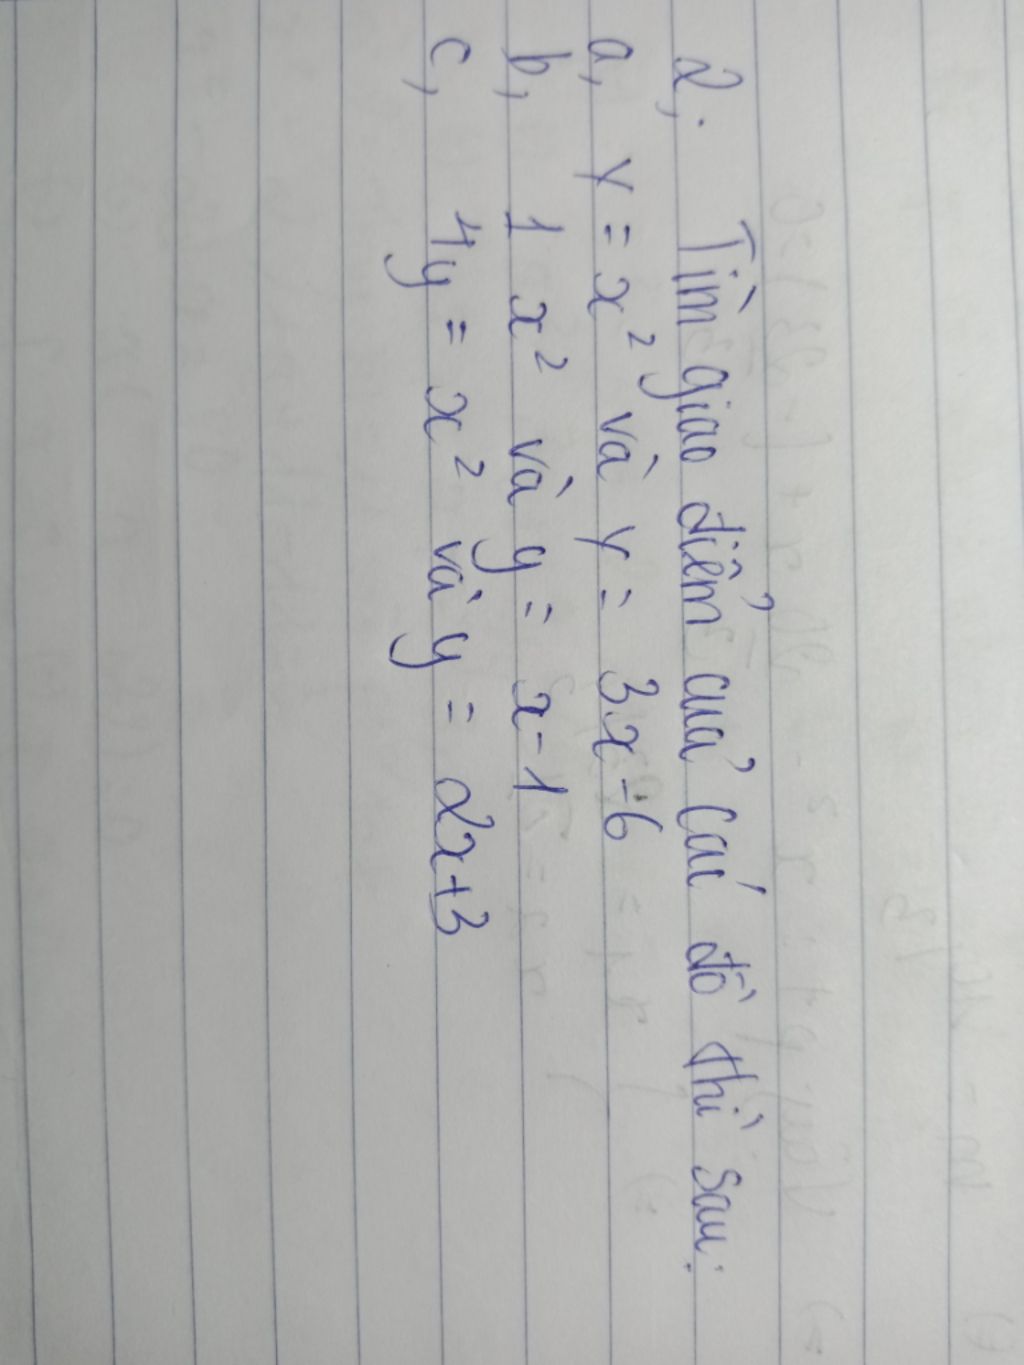 2,. Tìm giao điểm của các đồ thị sau:
a, y = x² và y = 3x - 6
b, 1 x² và y = x - 1
c, 4y = x² và y = 2x + 3